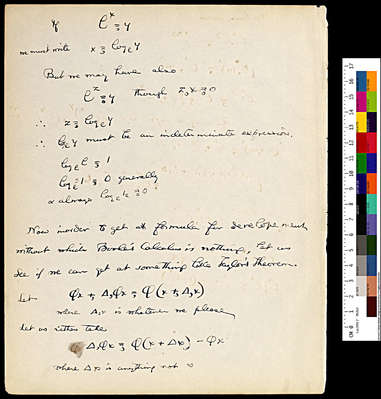 If   e^x ⹀ y
we must write   x ⹀ log_e y
But we may have also
e^z ⹀ y   through z,x ⹀ 0
∴ z ⹀ log_e y
∴ log_e y must be an indeterminate expression.
log_e e ⹀ 1
log_e 1 ⹀ 0 generally
& always log_e
Now in order to get at formulae for developement
without which Boole's Calculus is nothing, let us
see if we can get at something like Taylor's Theorem.
Let   φx + Δ,φx ⹀ φ(x + Δ,x)
where Δ,x is whatever we please
Let us rather take
ΔφX ⹀ φ(x + Δx) − φx
where Δx is anything not